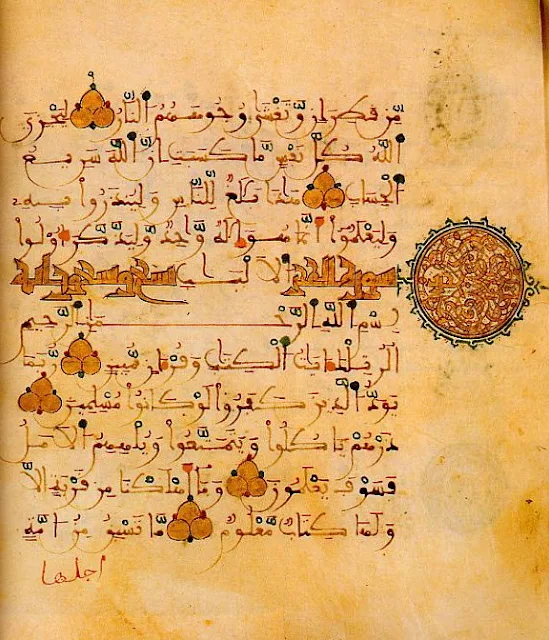 مِّن قَطِرَانٍ وَّتَغْشَى وُجُوهَهُمُ النَّارُ لِيَجْزِيَ
اللَّهُ كُلَّ نَفْسٍ مَّا كَسَبَتِ انَّ اللَّهَ سَرِيعُ
الْحِسَابِ هَذَا بَلَغٌ لِّلنَّاسِ وَلِيُنذَرُوا بِهِ
وَلِيَعْلَمُوا أَنَّمَا هُوَ إِلَهٌ وَّاحِدٌ وَّلِيَذَّكَّرَ أُوْلُوا
سورة الحجر الالْبَابِ تسع وتسعون اية
بِسْمِ اللَّهِ الرَّحْمَنِ الرَّحِيمِ
الَر تِلْكَ ءايَتُ الْكِتَبِ وَقُرْءَانٍ مُّبِينٍ رُّبَمَا
يَوَدُّ الَّذِينَ كَفَرُوا لَوْ كَانُوا مُسْلِمِينَ
ذَرْهُمْ يَاكُلُوا وَيَتَمَتَّعُوا وَيُلْهِهِمُ الامَلُ
فَسَوْفَ يَعْلَمُونَ وَمَا أَهْلَكْنَا مِن قَرْيَةٍ الاَّ
وَلَهَا كِتَابٌ مَّعْلُومٌ مَّا تَسْبِقُ مِنُ امَّةٍ
اجلها